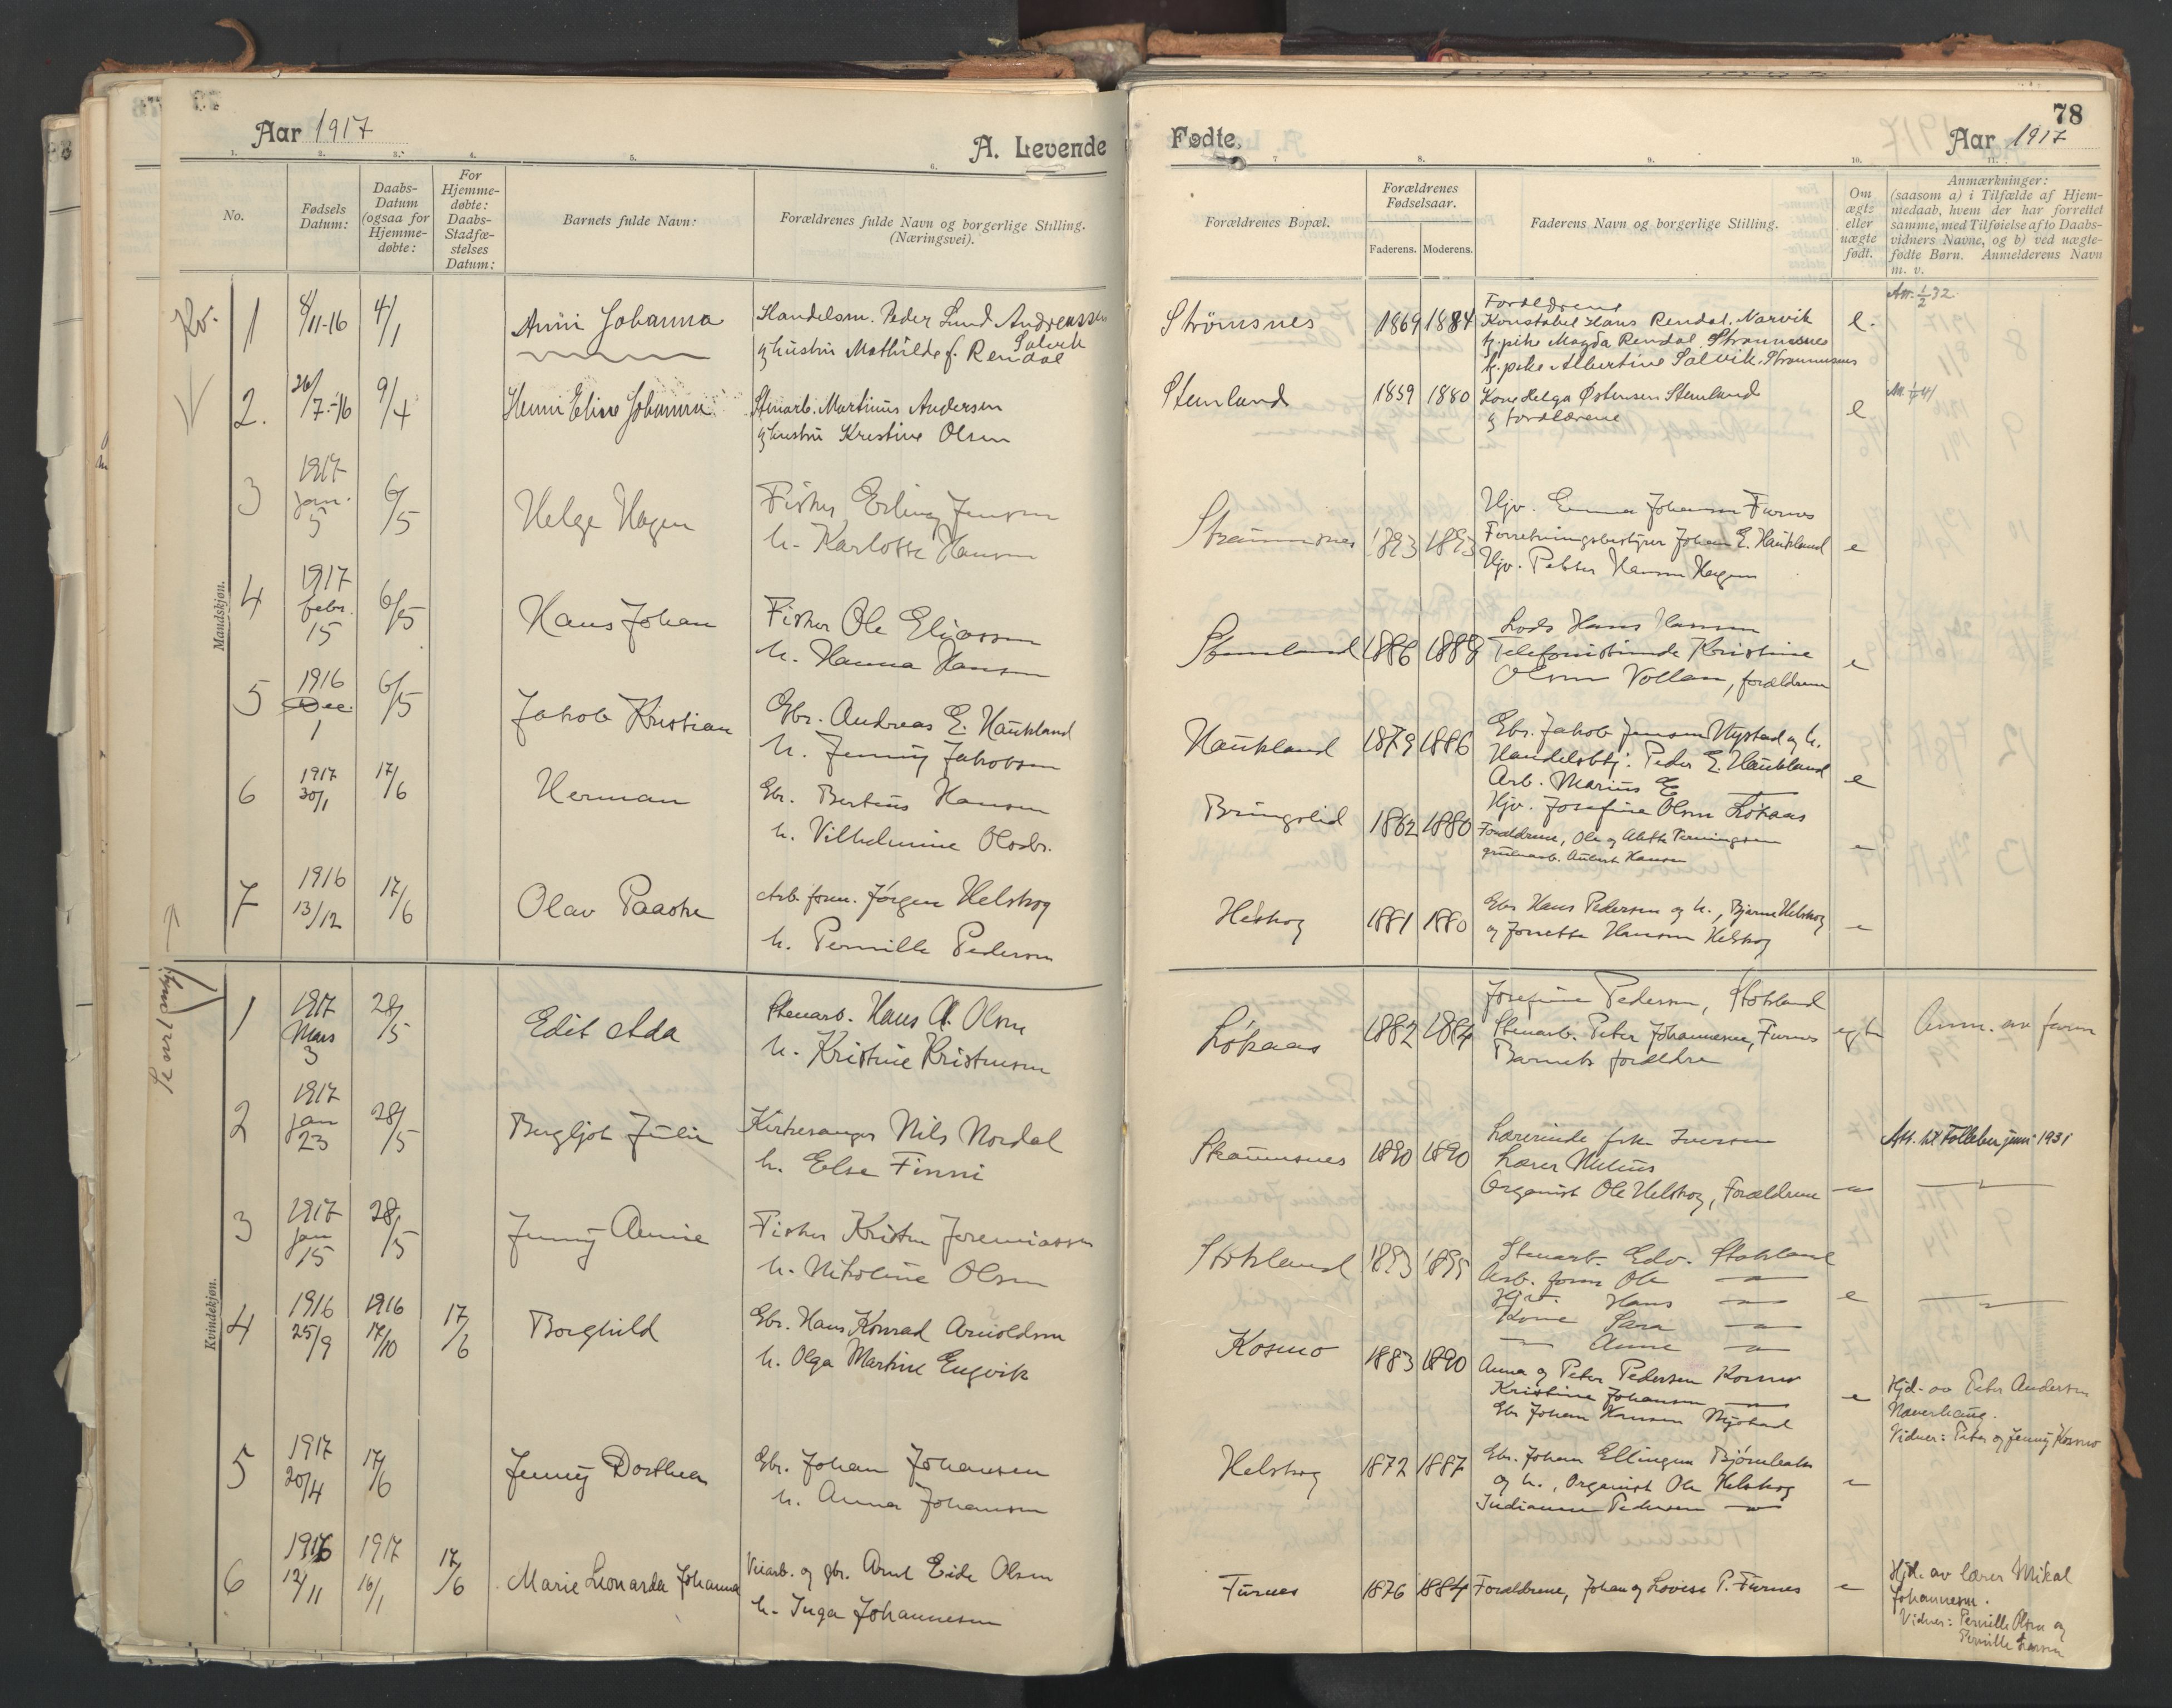 78
Aar 1917
A. Levende
Fødte.
Aar 1917
1. 2. 3. 4. 5. 6.
No.
Fødsels Datum:
Daabs-Datum (ogsaa for Hjemme-døbte:
For Hjemme-døbte: Daabs-Stadfæ-stelses Datum:
Barnets fulde Navn:
Forældrenes fulde Navn og borgerlige Stilling. (Næringsvei).
7 8. 9. 10. 11.
Forældrenes Bopæl.
Forældrenes Fødselsaar.
Faderens. Moderens.
Faderens Navn og borgerlige Stilling.
Om ægte eller uægte født.
Anmærkninger:
(saasom a) i Tilfælde af Hjem-
medaab, hvem der har forrettet
samme, med Tilføielse af to Daabs-
vidners Navne, og b) ved uægte-
fødte Børn. Anmelderens Navn
m. v.
Mandskjøn.
Kv. 1 8/11-16 4/1 Anni Johanna
Handelsm. Peder Lund Andreassen Salvik
og hustru Mathilde f. Rendal
Strömsnes 1869 1884
Forældrene
Konstabel Hans Rendal, Narvik
og pike Magda Rendal, Strømsnes
og pike Albertine Salvik, Strømsnes
e.
Att. 1/2 32
2. 26/7-16 9/4 Henni Eline Johanna
Stenarb. Martinus Andersen
og hustru Kristine Olsen
Stemland 1859 1880
Kone Helga Østensen Stemland
og forældrene
e
3 1917 Jan. 5 6/5 Helge Hagen
Fisker Erling Jensen
h. Karlotte Hansen
Straumsnes 1893 1893
Hjv. Emma Johansen Furnes
Forretningsbestyrer Johan E. Haukland
Hjv. Petter Hansen Hagen
e
4 1917 febr. 15 6/5 Hans Johan
Fisker Ole Eliassen
h. Hanna Hansen
Stemland 1886 1888
Lods Hans Hansen
Telefonistinde Kristine
Olsen Vollan, forældrene
e
5 1916 Dec. 1 6/5 Jakob Kristian
Gbr. Andreas E. Haukland
h. Jenny Jakobsen
Haukland 1879 1886
Gbr. Jakob Jensen Nystad og h.
Handelsbtj. Peder E. Haukland
Arb. Marius E
e
6 1917 30/1 17/6 Herman
Gbr. Bertius Hansen
h. Vilhelmine Olsdr.
Bringslid 1862 1880
Hjv. Josefine Olsen Løkaas
Forældrene, Ole og Aletta Henningsen
grubearb. Aubert Hansen
7 1916 13/12 17/6 Olav Paaske
Arb. form. Jørgen Helskog
h. Pernille Pedersen
Helskog 1881 1880
Gbr Hans Pedersen og h., Bjarne Helskog
og Jonette Hansen Helskog
Kvindekjøn.
1 1917 Mars 3 28/5 Edit Ada
Stenarb. Hans A. Olsen
h. Kristine Kristensen
Løkaas 1882 1884
Josefine Pedersen, Stokland
Stenarb. Peter Johannesen, Furnes
Barnets forældre
egte
Anm. av faren
2 1917 Jan 23 28/5 Bergljot Julie
Kirkesanger Nils Nordal
h. Else Finni
Straumsnes 1890 1890
Lærerinde frk Iversen
Lærer Melius
Organist Ole Helskog, Forældrene
Att. til Folleber juni 1931
3 1917 Jan 15 28/5 Jenny Annie
Fisker Kristen Jeremiassen
h. Nikoline Olsen
Stokland 1893 1895
Stenarb. Edv. Stokland
Arb. form Ole
Hjv. Hans
Kone Sara
Anne
e
4 1916 25/9 1916 17/10 17/6 Borghild
Gbr. Hans Konrad Arnoldsen
h. Olga Martine Engvik
Kosmo 1883 1890
Anna og Peter Pedersen Kosmo
Kristine Johansen
Gbr Johan Hansen Myrstad
e
Hjd. av Peter Andersen
Naverhaug.
Vidner: Peter og Jenny Kosmo
5 1917 20/4 17/6 Jenny Dorthea
Gbr. Johan Johansen
h. Anna Johansen
Helskog 1872 1887
Gbr. Johan Ellingsen Bjørnbakk
og h., Organist Ole Helskog
Indianna Pedersen
6 1916 12/11 1917 16/1 17/6 Marie Leonarda Johanna
Veiarb. og gbr. Arnt Eide Olsen
h. Inga Johannesen
Furnes 1876 1884
Forældrene, Johan og Lovise P. Furnes
Hjd. av lærer Mikal
Johannesen.
Vidner: Pernille Olsen og
Pernille Larsen